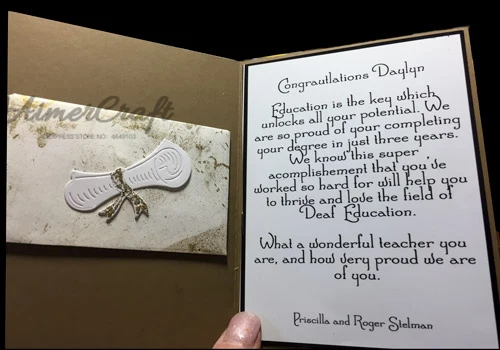 AimerCraft
Congrautlations Daylyn
Education is the key which
unlocks all your potential. We
are so proud of your completing
your degree in just three years.
We know this super
acomplishement that you've
worked so hard for will help you
to thrive and love the field of
Deaf Education.
What a wonderful teacher you
are, and how very proud we are
of you.
Priscilla and Roger Stelman